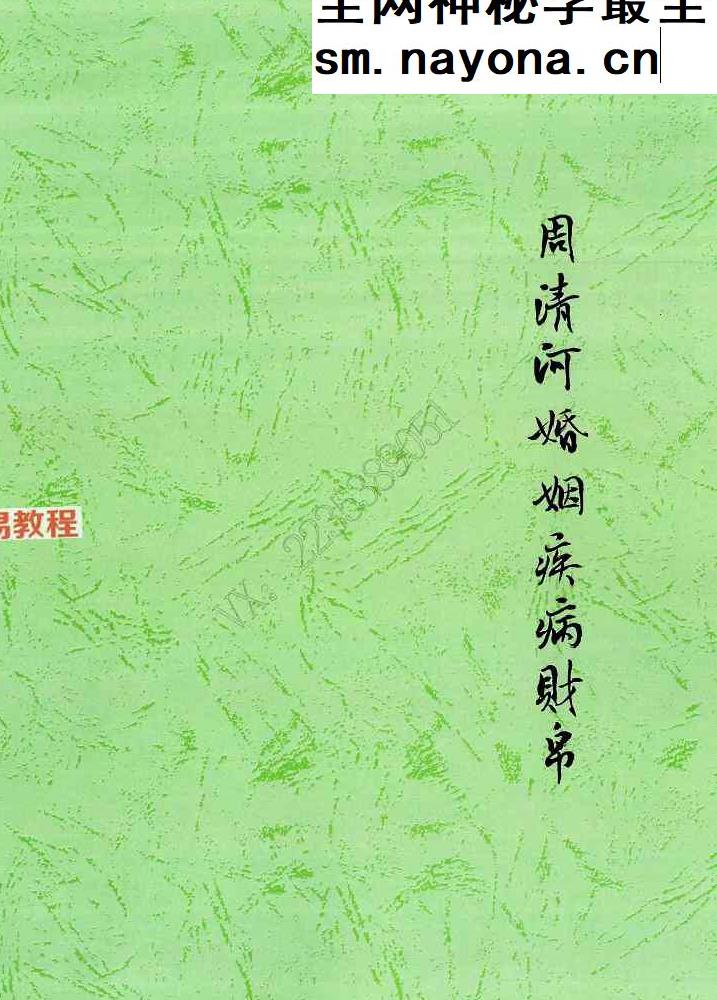 全网神秘学最全
sm.nayona.cn
周清河婚姻疾病財帛
易教程